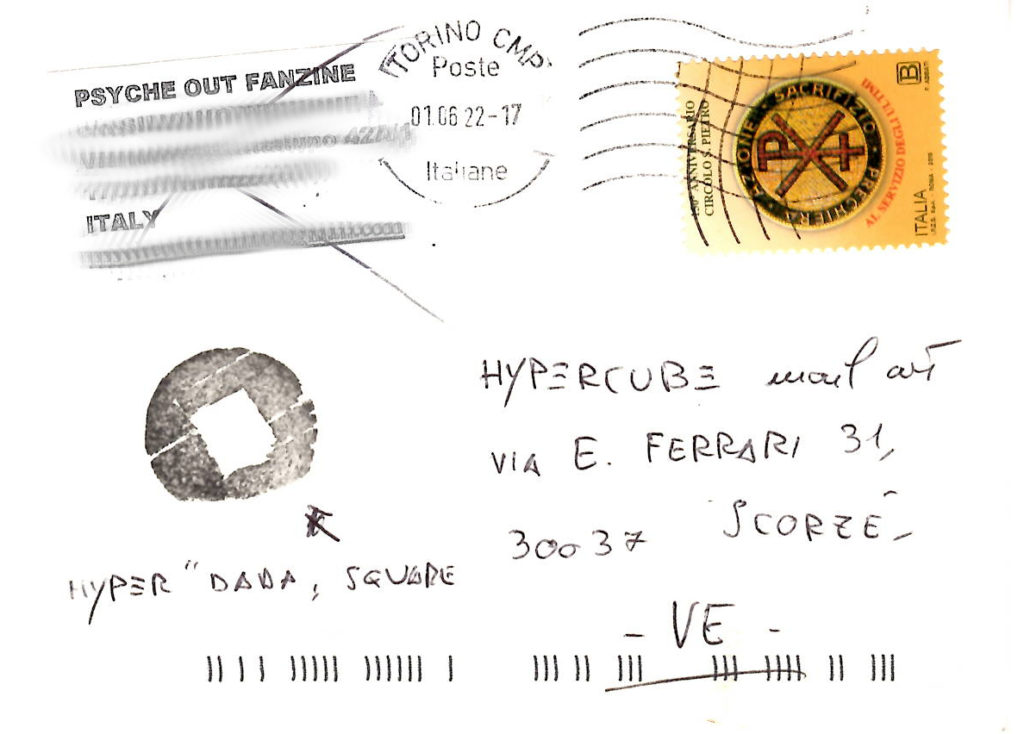 PSYCHE OUT FANZINE
ITALY
TORINO CMP
Poste
01.06.22-17
Italiane
150° ANNIVERSARIO
CIRCOLO S. PIETRO
PREGHIERA • AZIONE • SACRIFIZIO
AL SERVIZIO DEGLI ULTIMI
B
ITALIA
HYPERCUBE mail art
VIA E. FERRARI 31,
30037 SCORZÈ
- VE -
HYPER "DADA, SQUARE